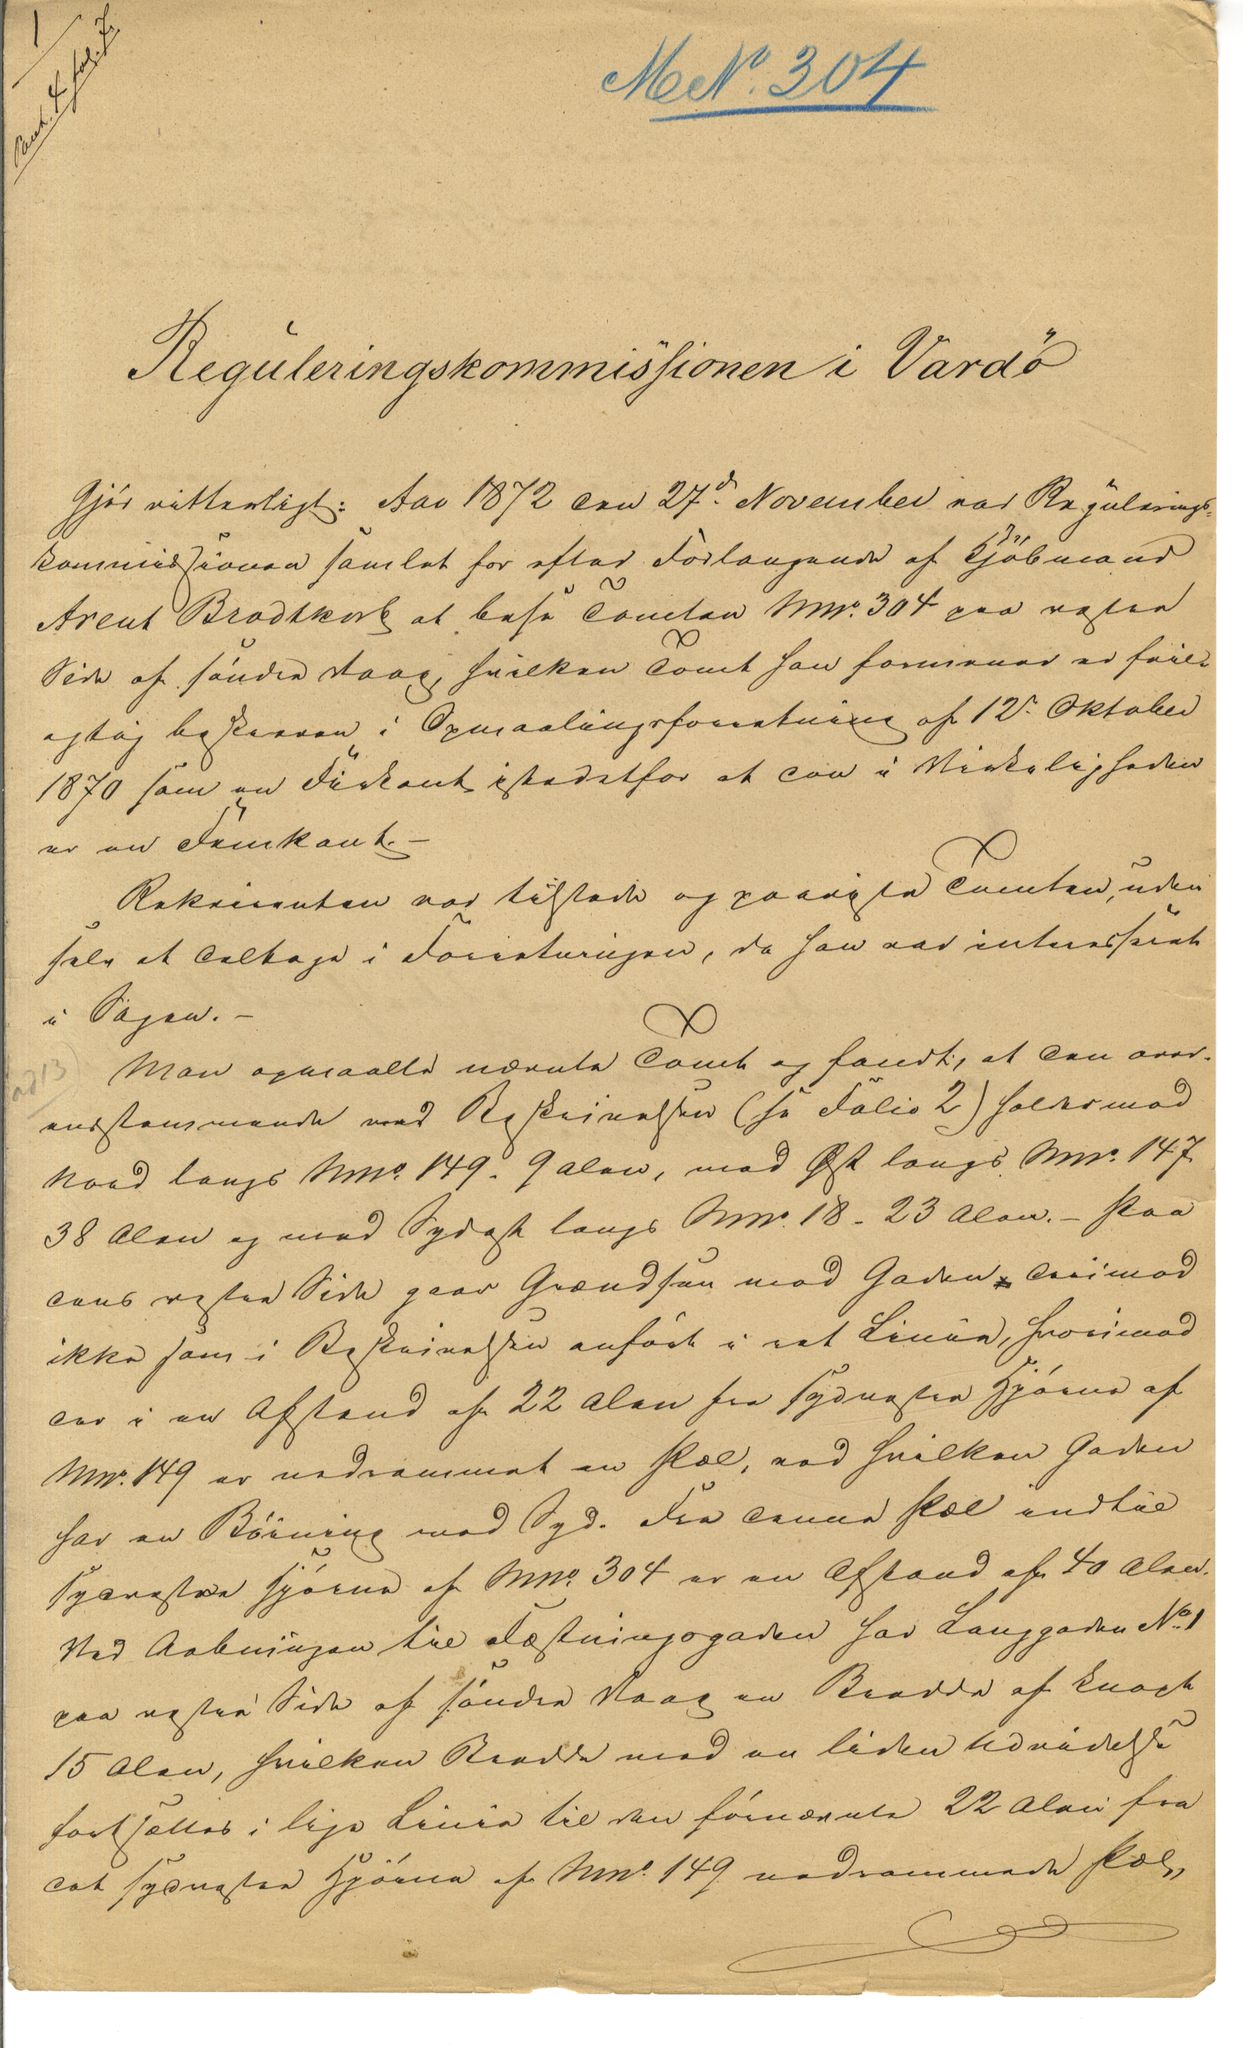 1
Pant. 4 fol. 7
M No. 304
Reguleringskommissionen i Vardö
Gjör vitterligt: Aar 1872 den 27de November var Regulerings-
kommissionen samlet for efter Forlangende af Kjöbmand
Arent Brodtkorb at bese Tomten Mno. 304 paa vestre
Side af söndre Vaag, hvilken Tomt han formener er feil-
agtig beskreven i Opmaalingsforretning af 12te Oktober
1870 som en Firkant istedetfor at den i Virkeligheden
er en Femkant. –
Rekvirenten var tilstede og paaviste Tomten, uden
selv at deltage i Forretningen, da han var interesseret
i Sagen. –
Man opmaalte nævnte Tomt og fandt, at den over-
ad 13)
ensstemmende med Beskrivelsen (se Folio 2) holder mod
Nord langs Mno. 149. 9 Alen, mod Øst langs Mno. 147
38 Alen og mod Sydost langs Mno. 18 – 23 Alen. – Paa
dens vestre Side gaar Grændsen mod Gaden derimod
ikke som i Beskrivelsen anfört i ret Linie, hvorimod
der i en Afstand af 22 Alen fra sydvestre Hjörne af
Mno. 149 er nedrammet en Pæl, ved hvilken Gaden
har en Böining mod Syd. Fra denne Pæl indtil
sydvestre Hjörne af Mno. 304 er en Afstand af 40 Alen.
Ved Aabningen til Fæstningsgaden har Langgaden No. 1
paa vestre Side af söndre Vaag en Bredde af knapt
15 Alen, hvilken Bredde med en liden Udvidelse
fortsættes i lige Linie til den förnævnte 22 Alen fra
det sydvestre Hjörne af Mno. 149 nedrammede Pæl,